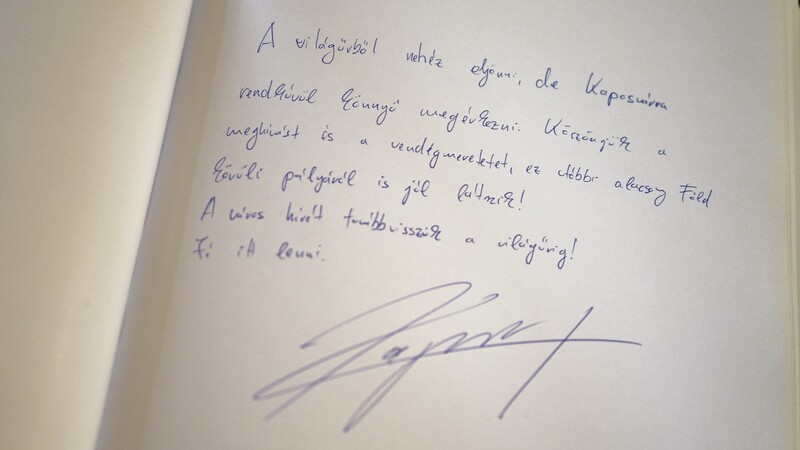 A világűrből nehéz eljönni, de Kaposvárra
rendkívül könnyű megérkezni. Köszönjük a
meghívást és a vendégszeretetet, ez utóbbi alacsony Föld
körüli pályáról is jól látszik!
A város hírét továbbvisszük a világűrig!
Jó itt lenni.